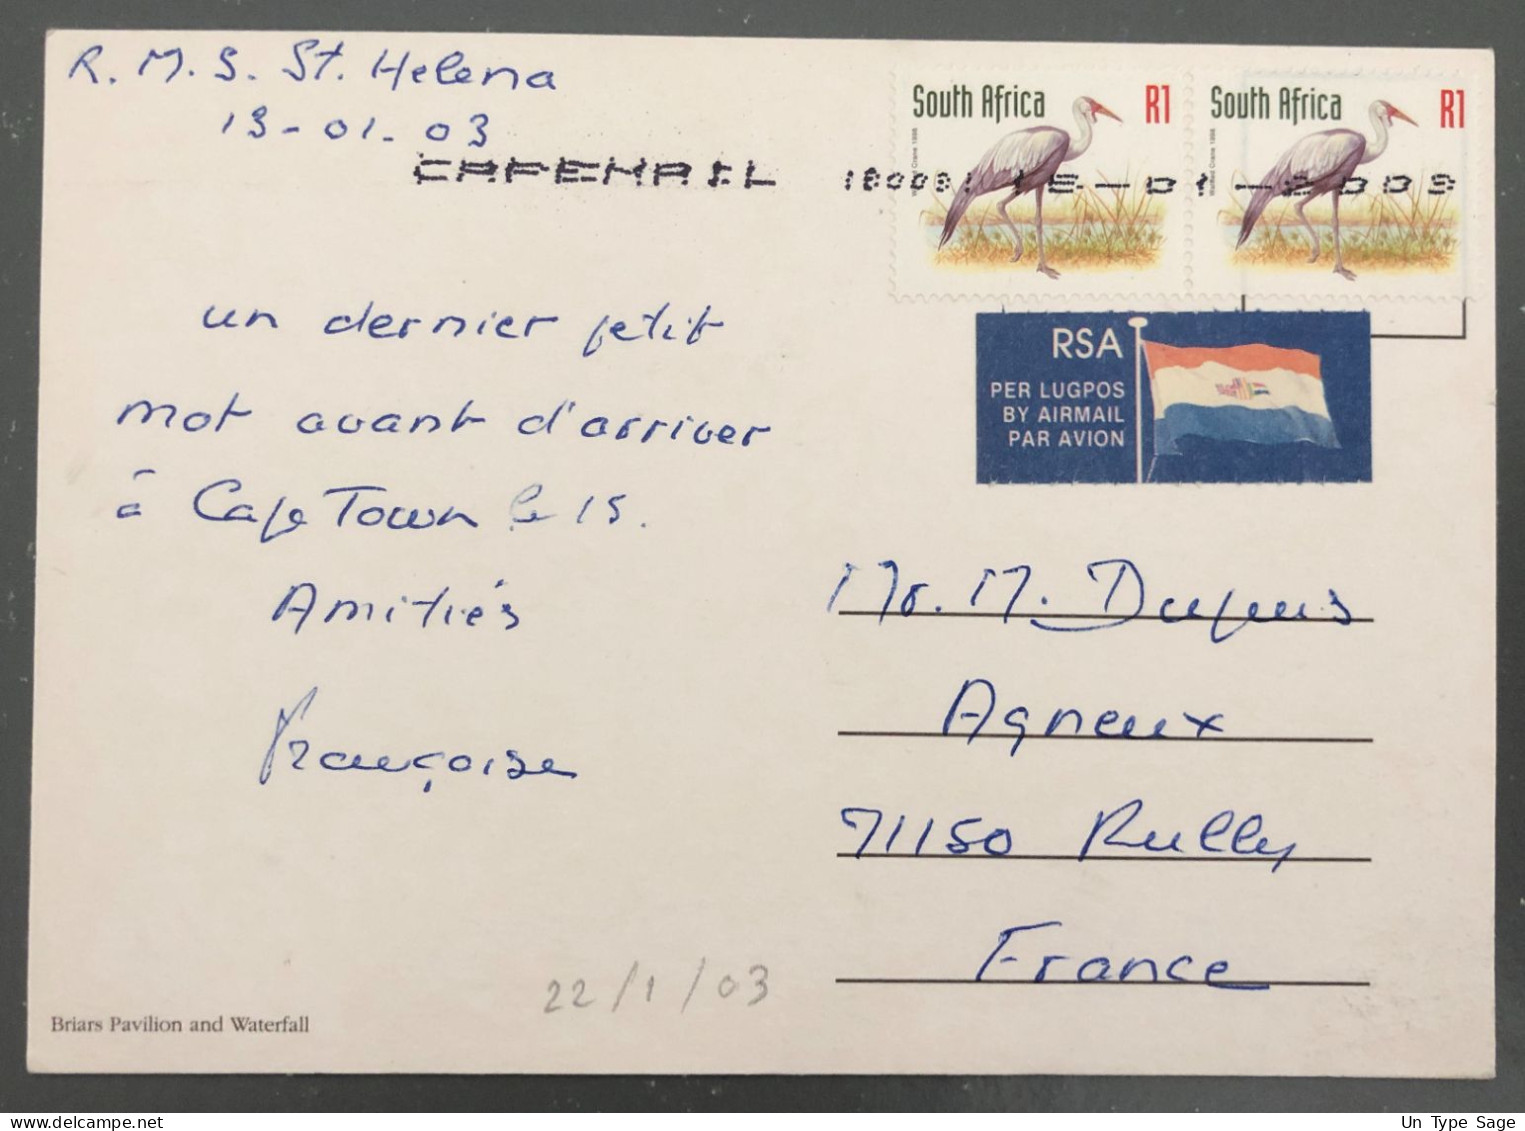 R. M. S. St. Helena
13-01-03
CAPEMAIL
South Africa R1
South Africa R1
un dernier petit
mot avant d'arriver
à Cape Town le 15.
Amitiés
Françoise
RSA
PER LUGPOS
BY AIRMAIL
PAR AVION
Mr. M. Dupuis
Agneux
71150 Rully
France
22/1/03
Briars Pavilion and Waterfall
Un Type Sage